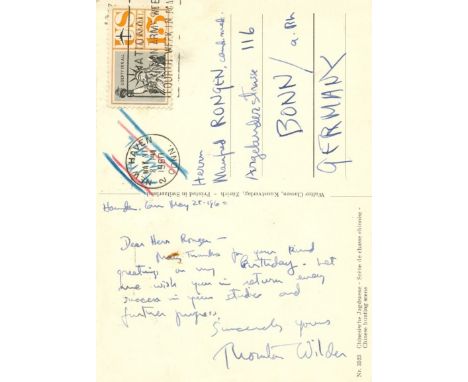 15¢
NATIONAL
FOURTH WEEK IN MAY
NEW HAVEN
MAY 31
1960
CONN.
Herrn
Manfred RONGEN, cand. med.
Argelanderstrasse 116
BONN / a. Rh
GERMANY
Walter Classen, Kunstverlag, Zürich — Printed in Switzerland
Hamden, Conn May 28 · 1960
Dear Herr Rongen —
Many Thanks for your kind
greetings on my Birthday. Let
me wish you in return every
success in your studies and
further progress.
Sincerely yours
Thornton Wilder
Chinesische Jagdszene - Scène de chasse chinoise -
Chinese hunting scene